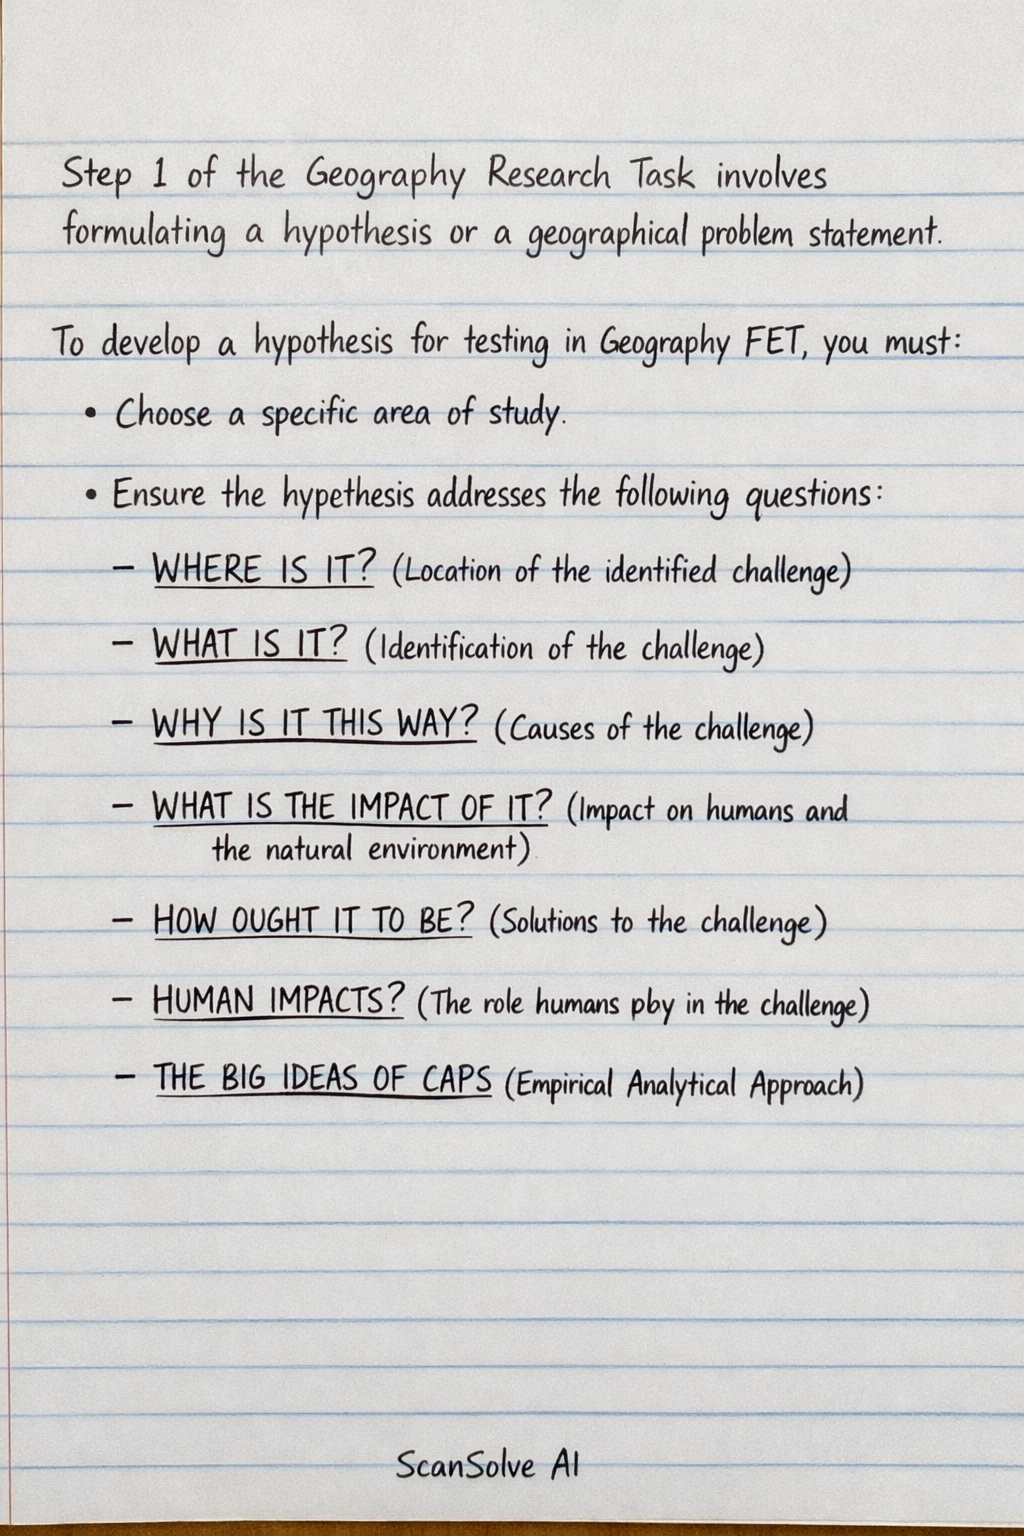 Step 1 of the Geography Research Task involves
formulating a hypothesis or a geographical problem statement.
To develop a hypothesis for testing in Geography FET, you must:
• Choose a specific area of study.
• Ensure the hypethesis addresses the following questions:
– WHERE IS IT? (Location of the identified challenge)
– WHAT IS IT? (Identification of the challenge)
– WHY IS IT THIS WAY? (Causes of the challenge)
– WHAT IS THE IMPACT OF IT? (Impact on humans and
the natural environment)
– HOW OUGHT IT TO BE? (Solutions to the challenge)
– HUMAN IMPACTS? (The role humans pby in the challenge)
– THE BIG IDEAS OF CAPS (Empirical Analytical Approach)
ScanSolve AI